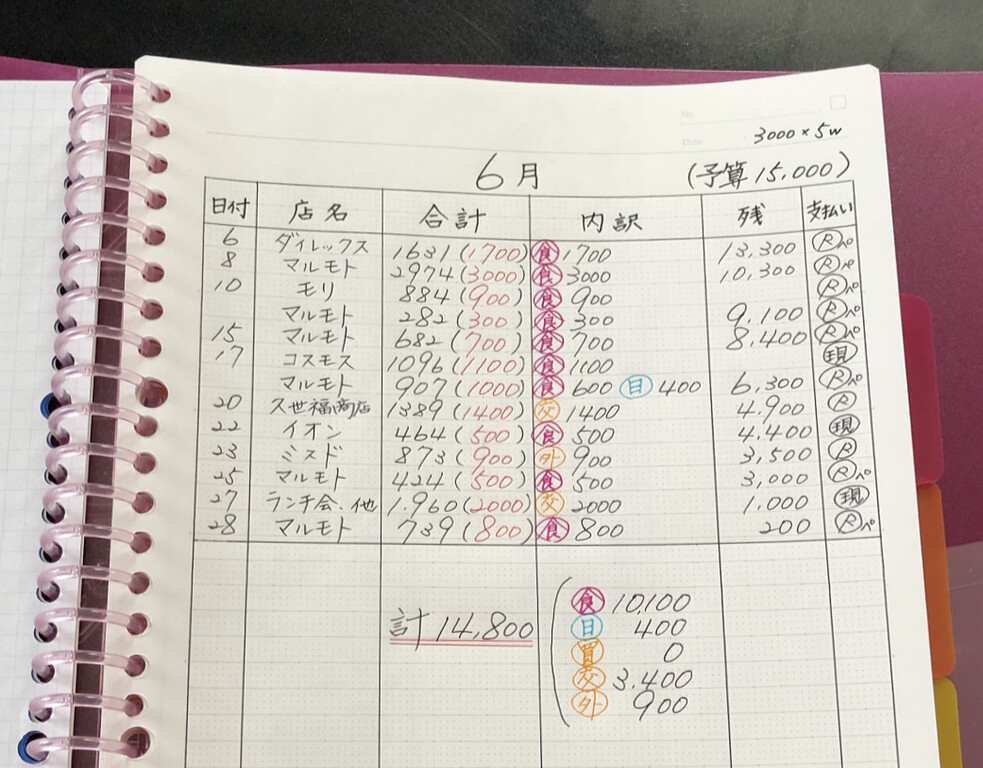 No.
Date
3000×5w
6月 (予算 15,000)
日付 店名 合計 内訳 残 支払い
6 ダイレックス 1631(1700) 食 1700 13,300 Rペ
8 マルモト 2974(3000) 食 3000 10,300 Rペ
10 モリ 884(900) 食 900 Rペ
マルモト 282(300) 食 300 9,100 Rペ
15 マルモト 682(700) 食 700 8,400 Rペ
17 コスモス 1096(1100) 食 1100 現
マルモト 907(1000) 食 600 日 400 6,300 Rペ
20 久世福商店 1389(1400) 交 1400 4,900 R
22 イオン 464(500) 食 500 4,400 現
23 ミスド 873(900) 外 900 3,500 R
25 マルモト 424(500) 食 500 3,000 Rペ
27 ランチ会、他 1,960(2000) 交 2000 1,000 現
28 マルモト 739(800) 食 800 200 Rペ
計 14,800
食 10,100
日 400
買 0
交 3,400
外 900